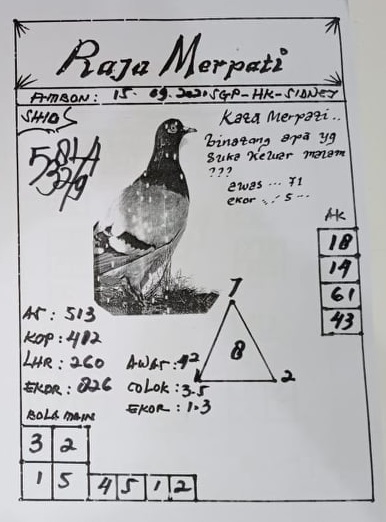 Raja Merpati
AMBON: 15. 09. 2021 SGP-HK-SIDNEY
SHIO
Kata Merpati..
binatang apa yg
suka keluar malam
???
awas ... 71
ekor ... 5 --
AK
18
19
61
43
7
8
2
AS : 513
KOP : 412
LHR : 260
EKOR : 826
AWAS : 92
COLOK : 3.5
EKOR : 1.3
BOLA MAIN
3 2
1 5 4 5 1 2